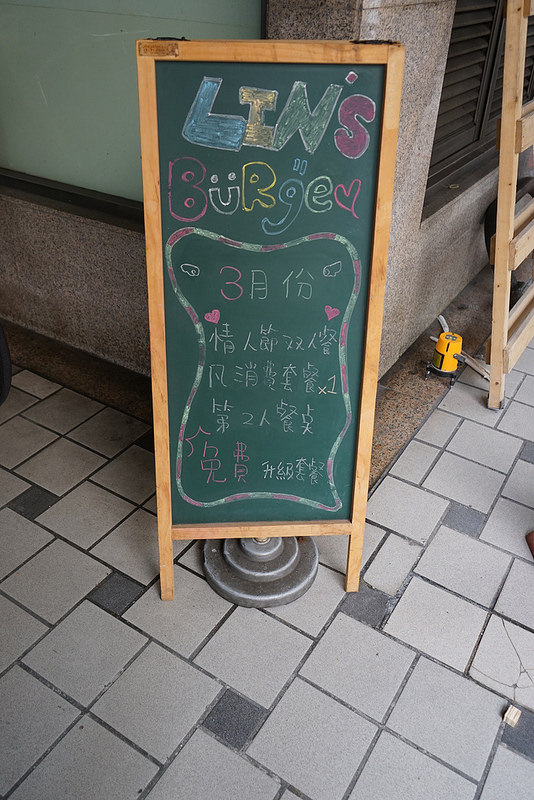 LIN'S
BüRge
3月份
情人節双人餐
凡消費套餐x1
第2人餐桌
免費 升級套餐